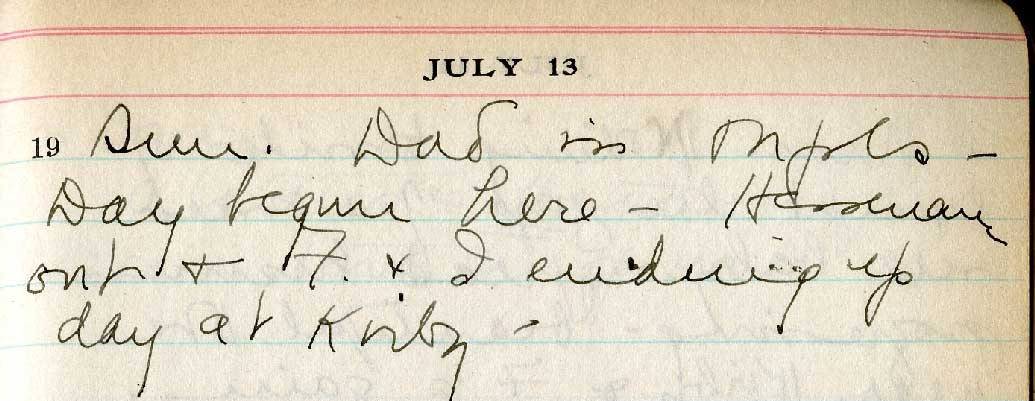 JULY 13
19 Sun. Dad in Mpls -
Day begun here - Hasseman
out & F. & I ending up
day at Kirby -